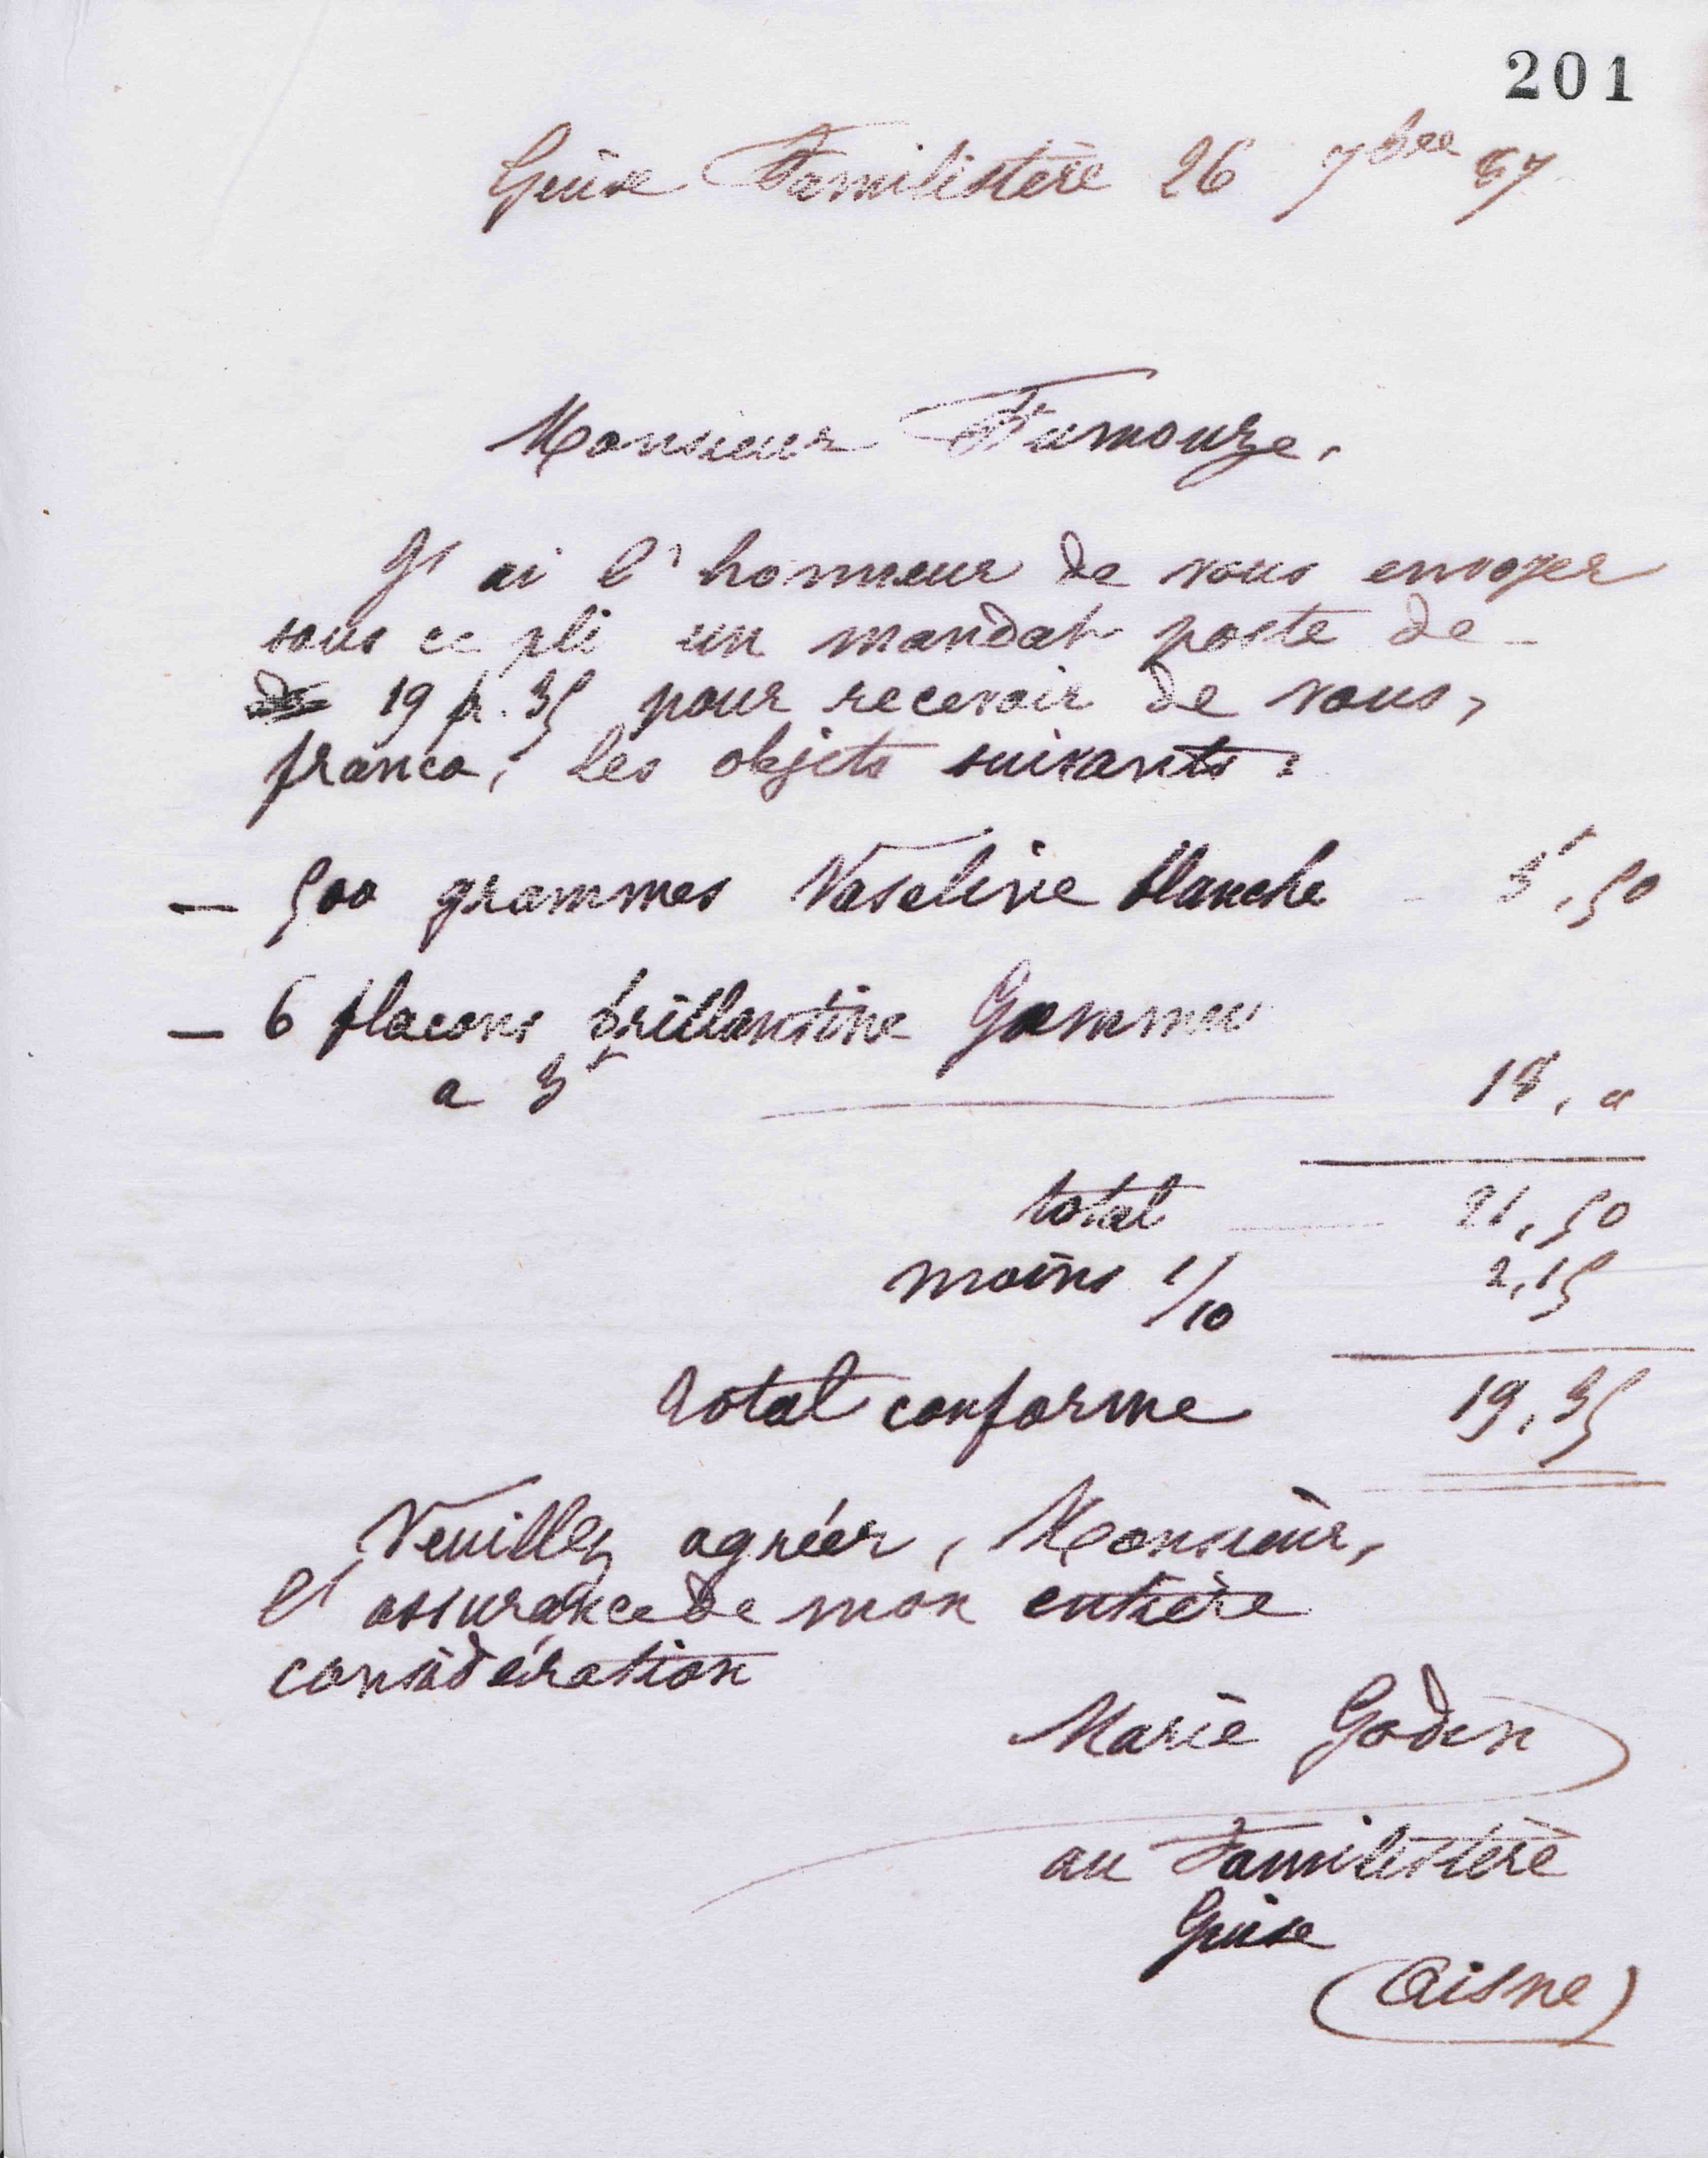 201
Guise Familistère 26 7bre 87
Monsieur Fumouze,
J'ai l'honneur de vous envoyer
sous ce pli un mandat poste de
de 19 fr. 35 pour recevoir de vous,
franco, les objets suivants :
— 500 grammes Vaseline blanche 3f,50
— 6 flacons brillantine
a 3f 18, "
total 21,50
moins 1/10 2,15
total conforme 19,35
Veuillez agréer, Monsieur,
l'assurance de mon entière
considération
Marie Godin
au Familistère
Guise
(Aisne)